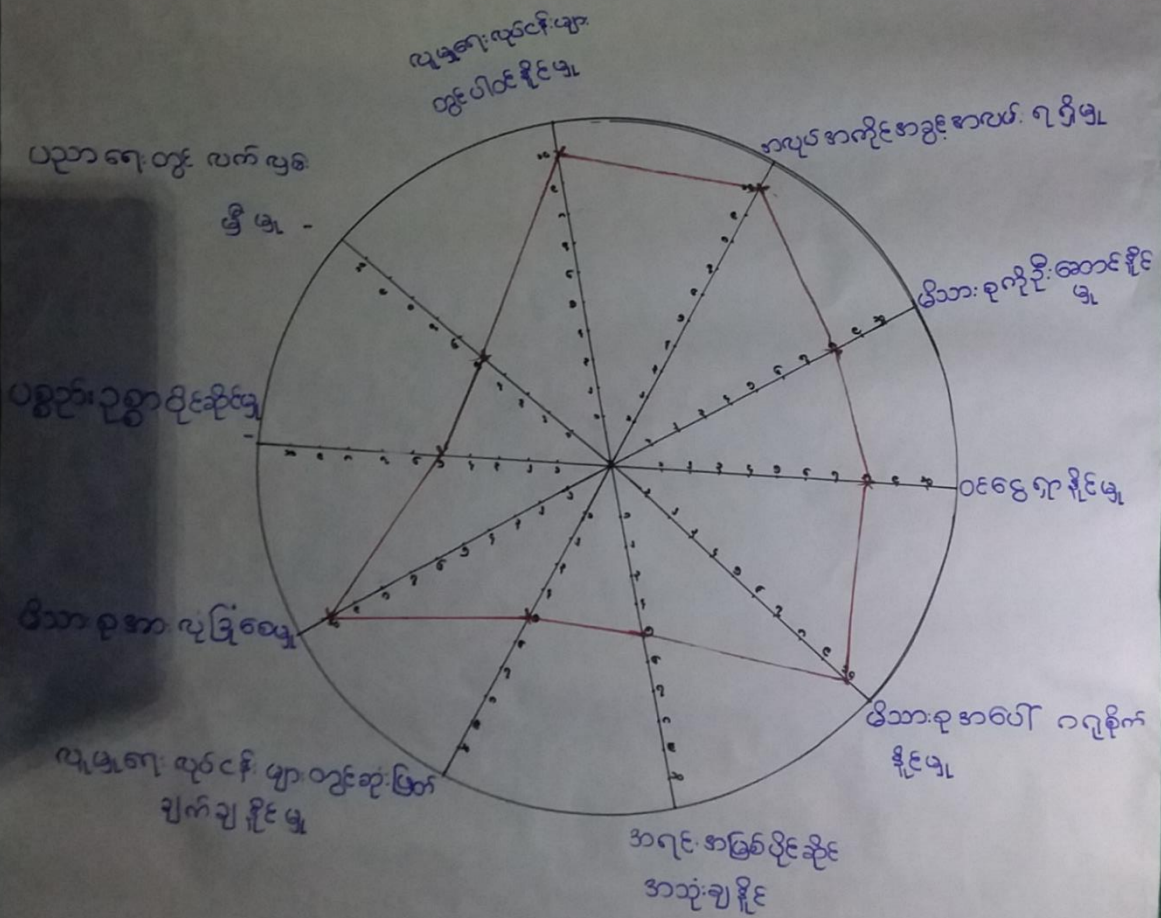 လူမှုရေးလုပ်ငန်းများ
တွင်ပါဝင်နိုင်မှု
အလုပ်အကိုင်အခွင့်အလမ်း ရရှိမှု
မိသားစုကိုဦးဆောင်နိုင်
မှု
ဝင်ငွေရှာနိုင်မှု
မိသားစုအပေါ် ဂရုစိုက်
နိုင်မှု
အရင်းအမြစ်ပိုင်ဆိုင်
အသုံးချနိုင်
လူမှုရေး လုပ်ငန်းများတွင်ဆုံးဖြတ်
ချက်ချနိုင်မှု
မိသားစုအား လုံခြုံစေမှု
ပစ္စည်းဥစ္စာပိုင်ဆိုင်မှု
ပညာရေးတွင် လက်လှမ်း
မှီမှု